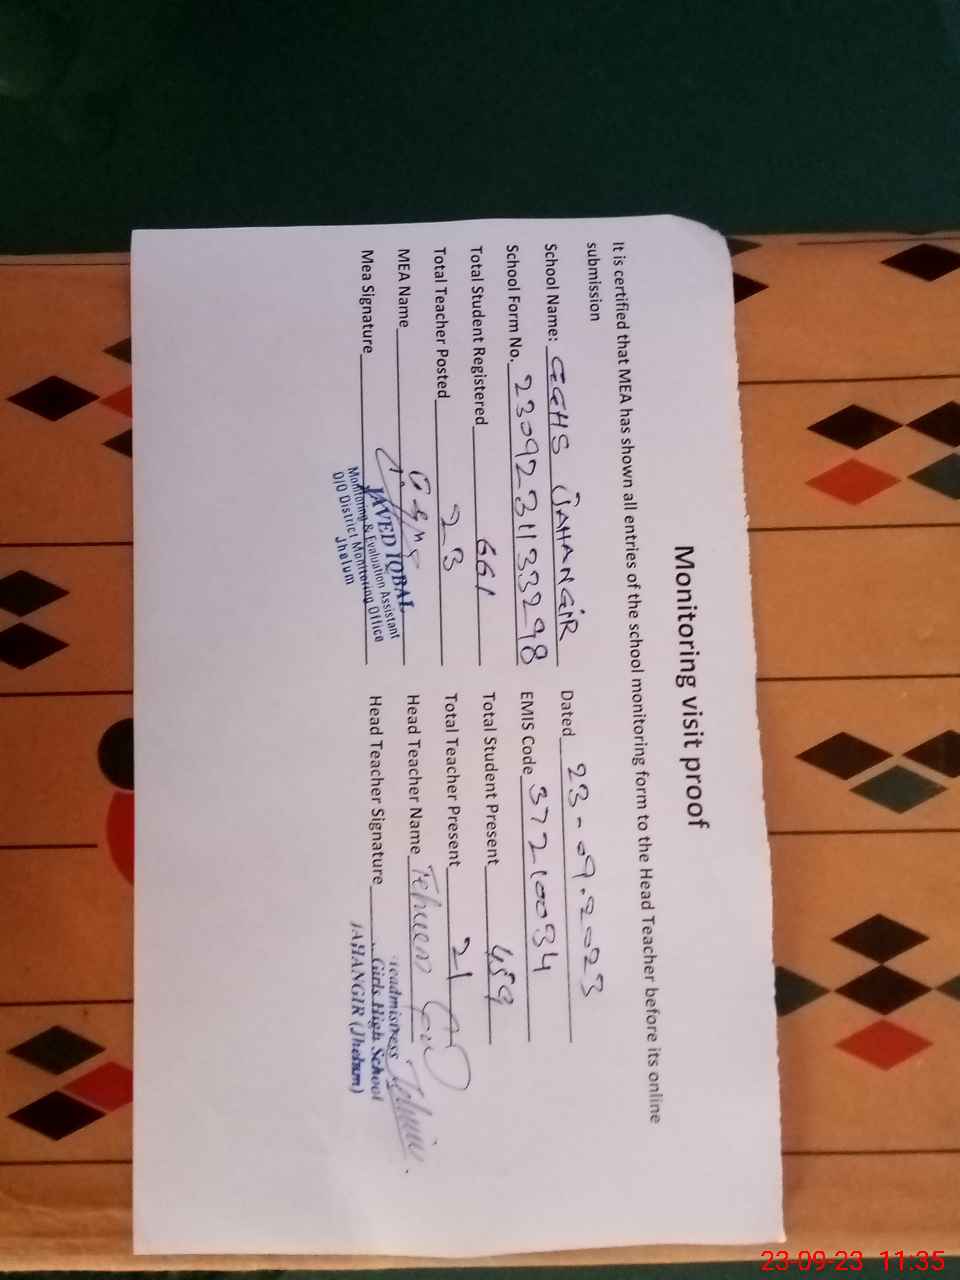 Monitoring visit proof
It is certified that MEA has shown all entries of the school monitoring form to the Head Teacher before its online
submission
School Name: GGHS JAHANGIR Dated 23-09.2023
School Form No. 23092311333298 EMIS Code 37210034
Total Student Registered 661 Total Student Present 459
Total Teacher Posted 23 Total Teacher Present 21
MEA Name Head Teacher Name
Mea Signature Head Teacher Signature
JAVED IQBAL
Monitoring & Evaluation Assistant
O/O District Monitoring Office
Jhelum
Headmistress
Girls High School
JAHANGIR (Jhelum)
23-09-23 11:35